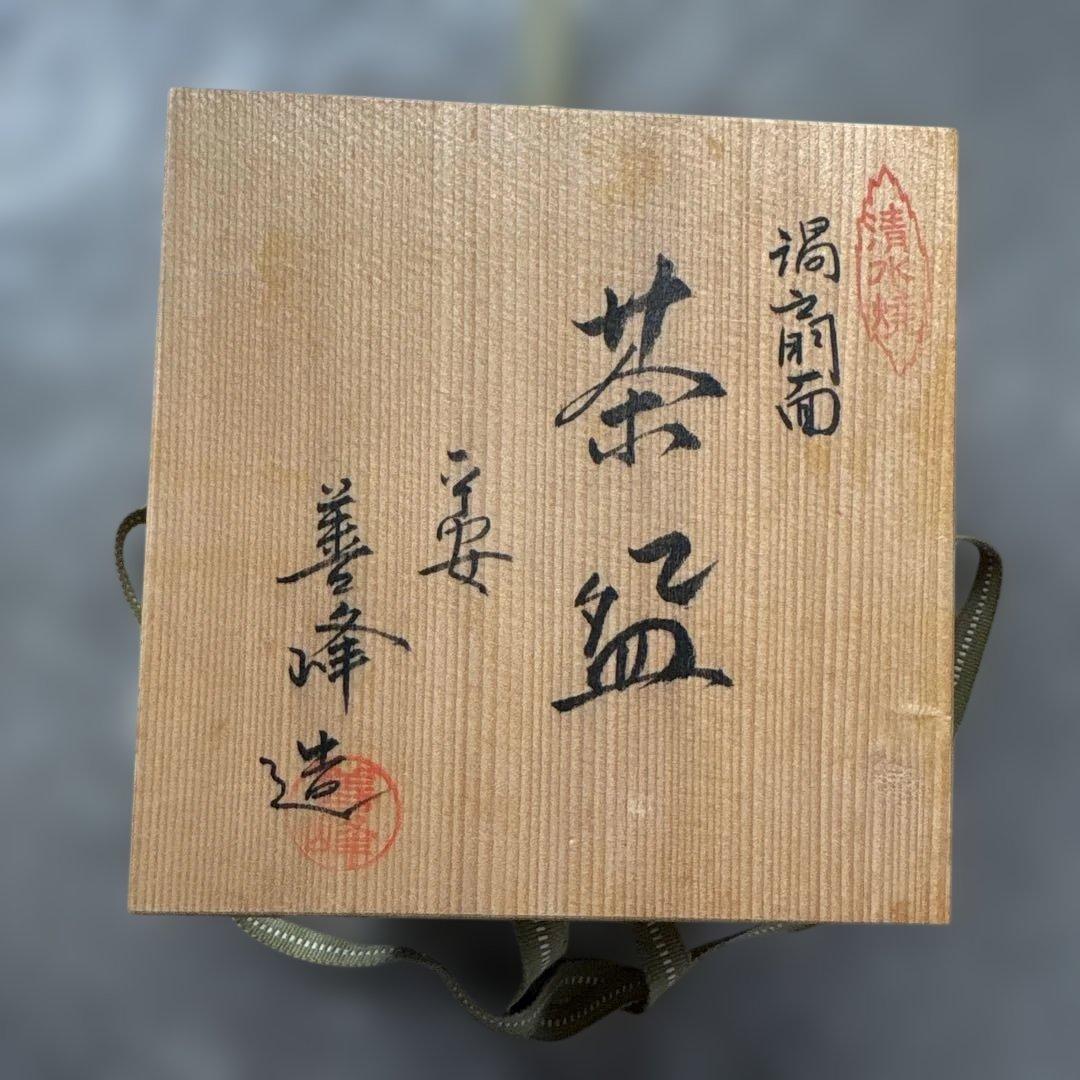 清水焼
渦扇面
茶盌
平安
善峰造
善峰